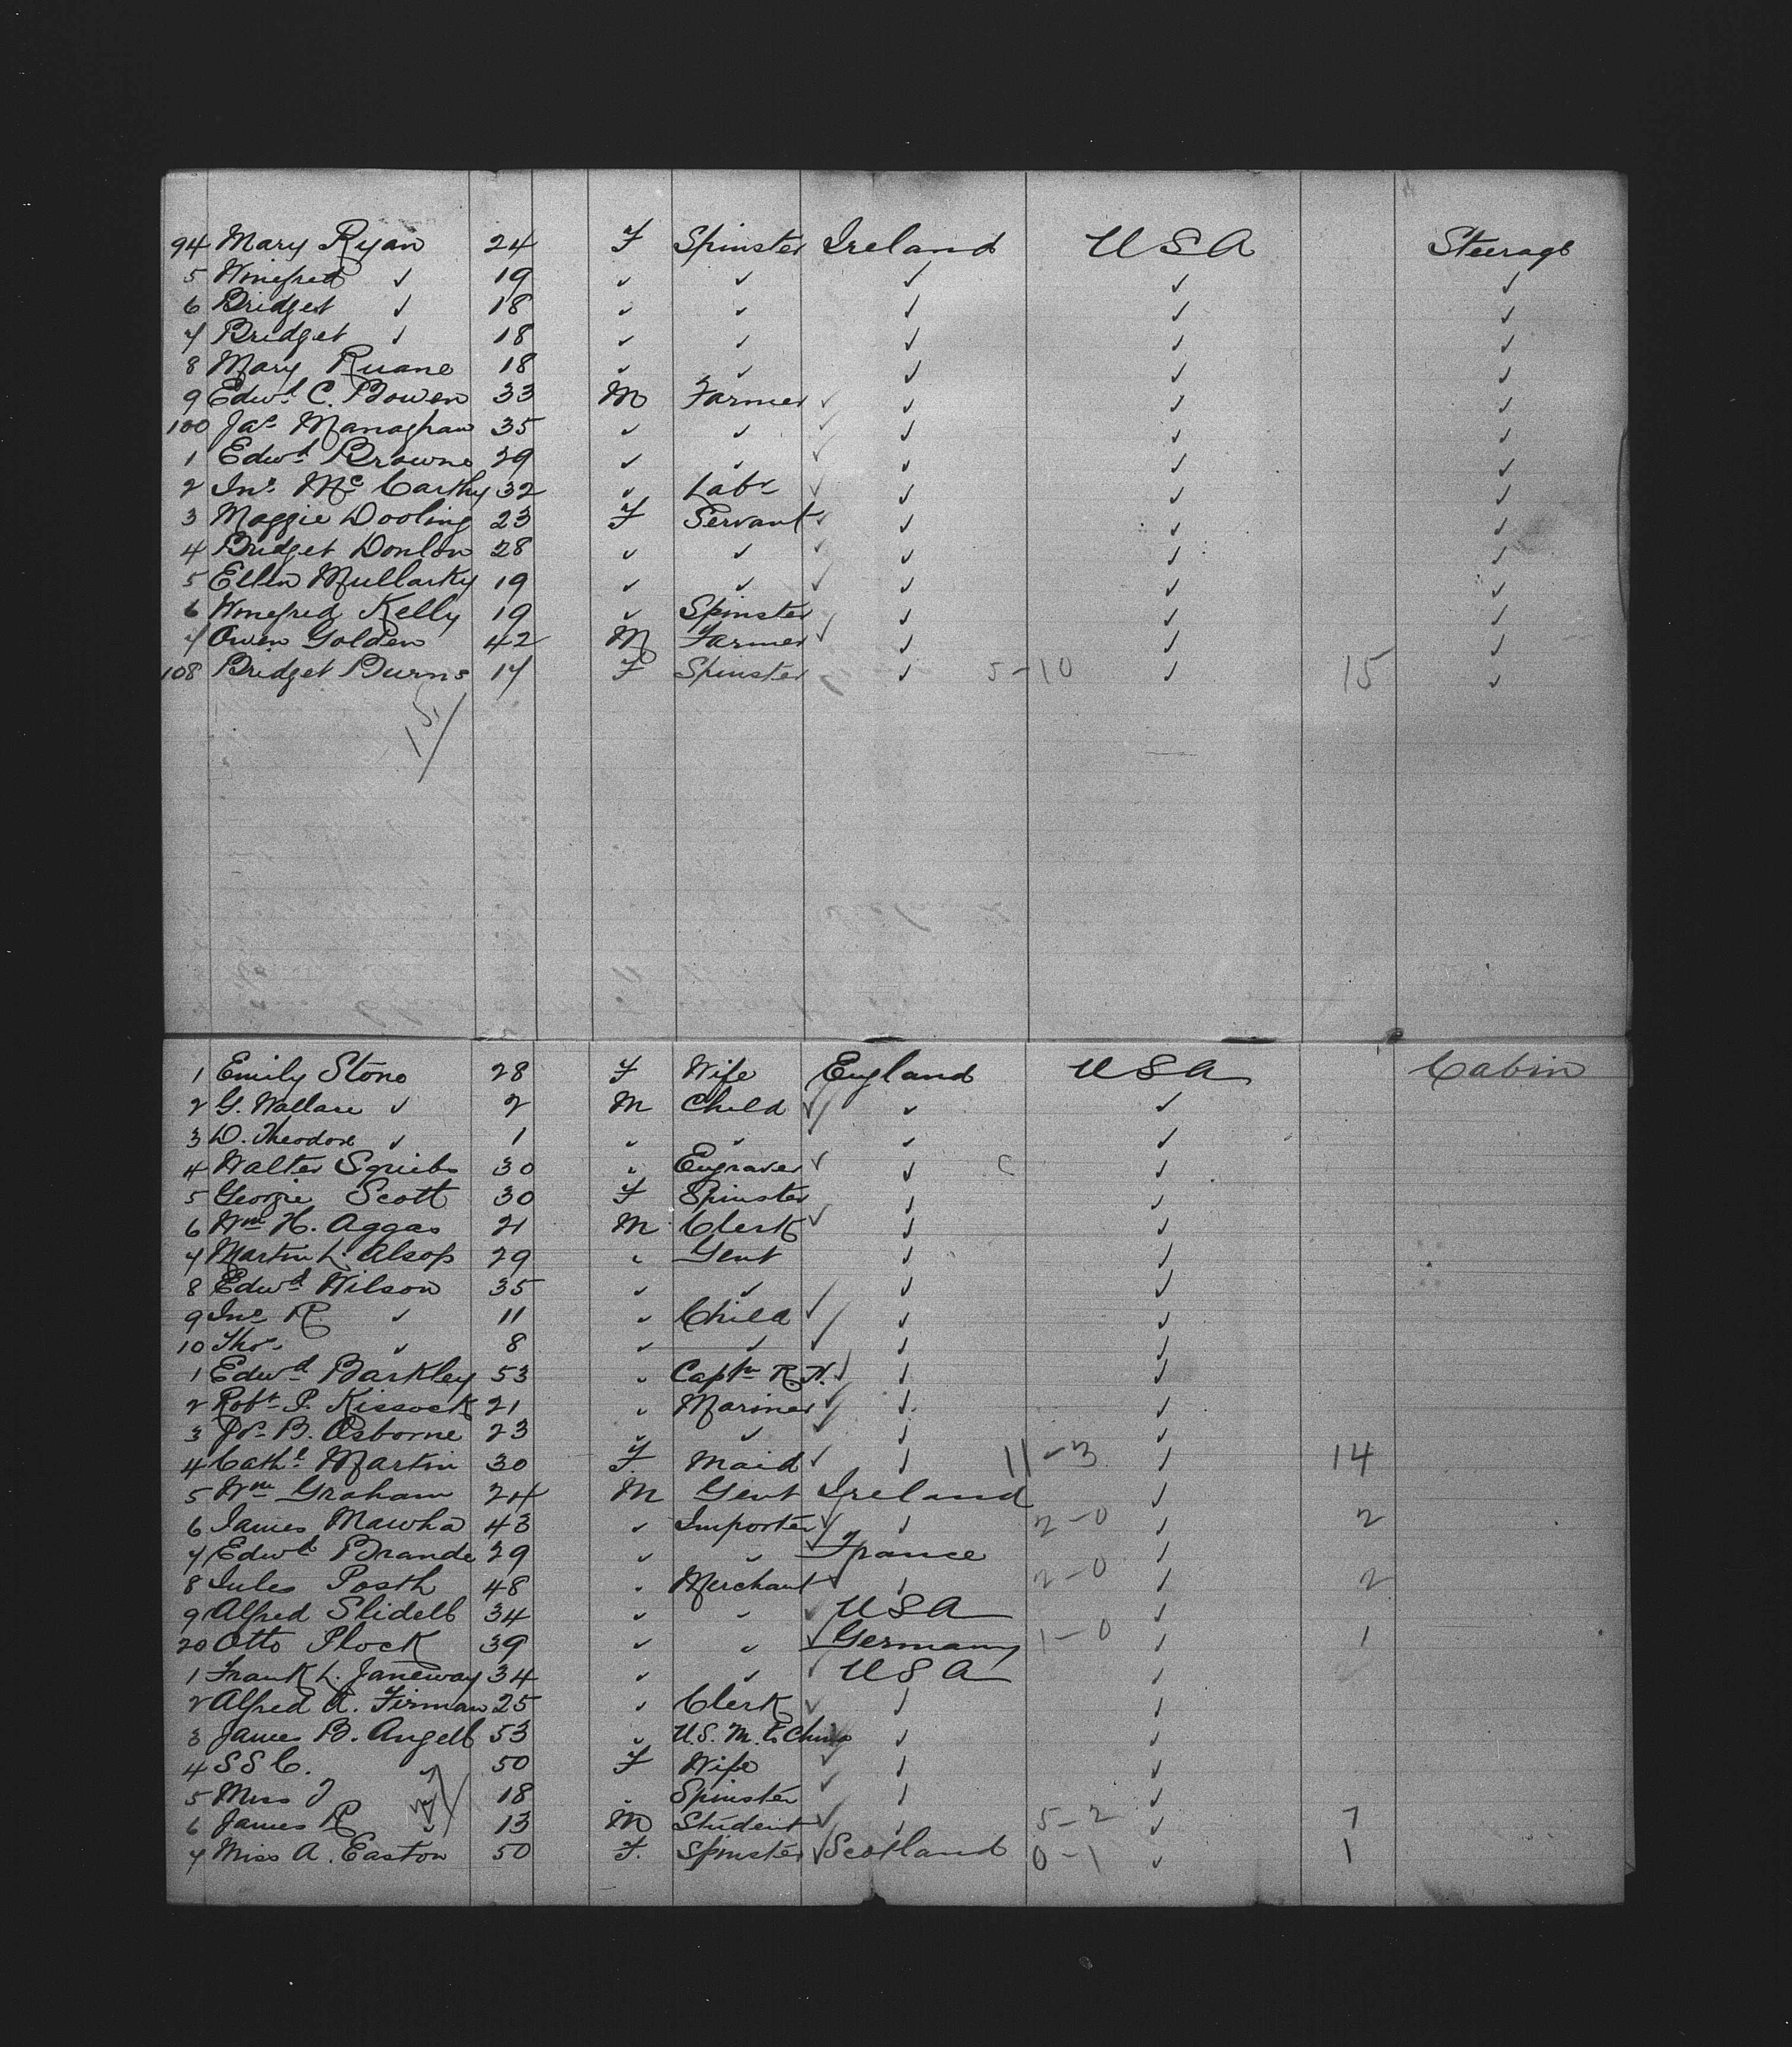 94 Mary Ryan 24 F Spinster Ireland USA Steerage
5 Winefred ✓ 19 ✓ ✓ ✓ ✓ ✓
6 Bridget ✓ 18 ✓ ✓ ✓ ✓ ✓
7 Bridget ✓ 18 ✓ ✓ ✓ ✓ ✓
8 Mary Ruane 18 ✓ ✓ ✓ ✓ ✓
9 Edwd C. Bowen 33 M Farmer ✓ ✓ ✓ ✓
100 Jas Managhan 35 ✓ ✓ ✓ ✓ ✓ ✓
1 Edwd Browne 29 ✓ ✓ ✓ ✓ ✓ ✓
2 Jno Mc Carthy 32 ✓ Labr ✓ ✓ ✓ ✓
3 Maggie Dooling 23 F Servant ✓ ✓ ✓ ✓
4 Bridget Donlon 28 ✓ ✓ ✓ ✓ ✓ ✓
5 Ellen Mullarky 19 ✓ ✓ ✓ ✓ ✓ ✓
6 Winefred Kelly 19 ✓ Spinster ✓ ✓ ✓
7 Owen Golden 42 M Farmer ✓ ✓ ✓ ✓
108 Bridget Burns 17 F Spinster ✓ 5-10 ✓ 15 ✓
15/
1 Emily Stone 28 F Wife England USA Cabin
2 G. Wallace ✓ 2 M Child ✓ ✓ ✓
3 D. Theodore ✓ 1 ✓ ✓ ✓ ✓
4 Walter Squibs 30 ✓ Engraver ✓ ✓ C ✓
5 Georgie Scott 30 F Spinster ✓ ✓
6 Wm H. Aggas 21 M Clerk ✓ ✓ ✓
7 Martin L. Alsop 29 ✓ Gent ✓ ✓
8 Edwd Wilson 35 ✓ ✓ ✓ ✓
9 Jno R. ✓ 11 ✓ Child ✓ ✓ ✓
10 Thos ✓ 8 ✓ ✓ ✓ ✓ ✓
1 Edwd Barkley 53 ✓ Captn R.N. ✓ ✓ ✓
2 Robt P. Kissock 21 ✓ Mariner ✓ ✓ ✓
3 Jno B. Osborne 23 ✓ ✓ ✓ ✓ ✓
4 Cathe Martin 30 F. Maid ✓ ✓ 11-3 ✓ 14
5 Wm Graham 24 M Gent Ireland ✓
6 James Mawha 43 ✓ Importer ✓ ✓ 2-0 ✓ 2
7 Edwd Brande 29 ✓ ✓ ✓ France ✓
8 Jules Posth 48 ✓ Merchant ✓ ✓ 2-0 ✓ 2
9 Alfred Slidell 34 ✓ ✓ ✓ USA ✓
20 Otto Plock 39 ✓ ✓ ✓ Germany 1-0 ✓ 1
1 Frank L. Janeway 34 ✓ ✓ ✓ USA ✓
2 Alfred A. Firman 25 ✓ Clerk ✓ ✓ ✓
3 James B. Angell 53 ✓ U.S. M. to China ✓ ✓
4 S S C. ✓ 50 F Wife ✓ ✓ ✓
5 Miss J 18 ✓ Spinster ✓ ✓ ✓
6 James R ✓ 13 M Student ✓ ✓ 5-2 ✓ 7
7 Miss A. Easton 50 F. Spinster ✓ Scotland 0-1 ✓ 1